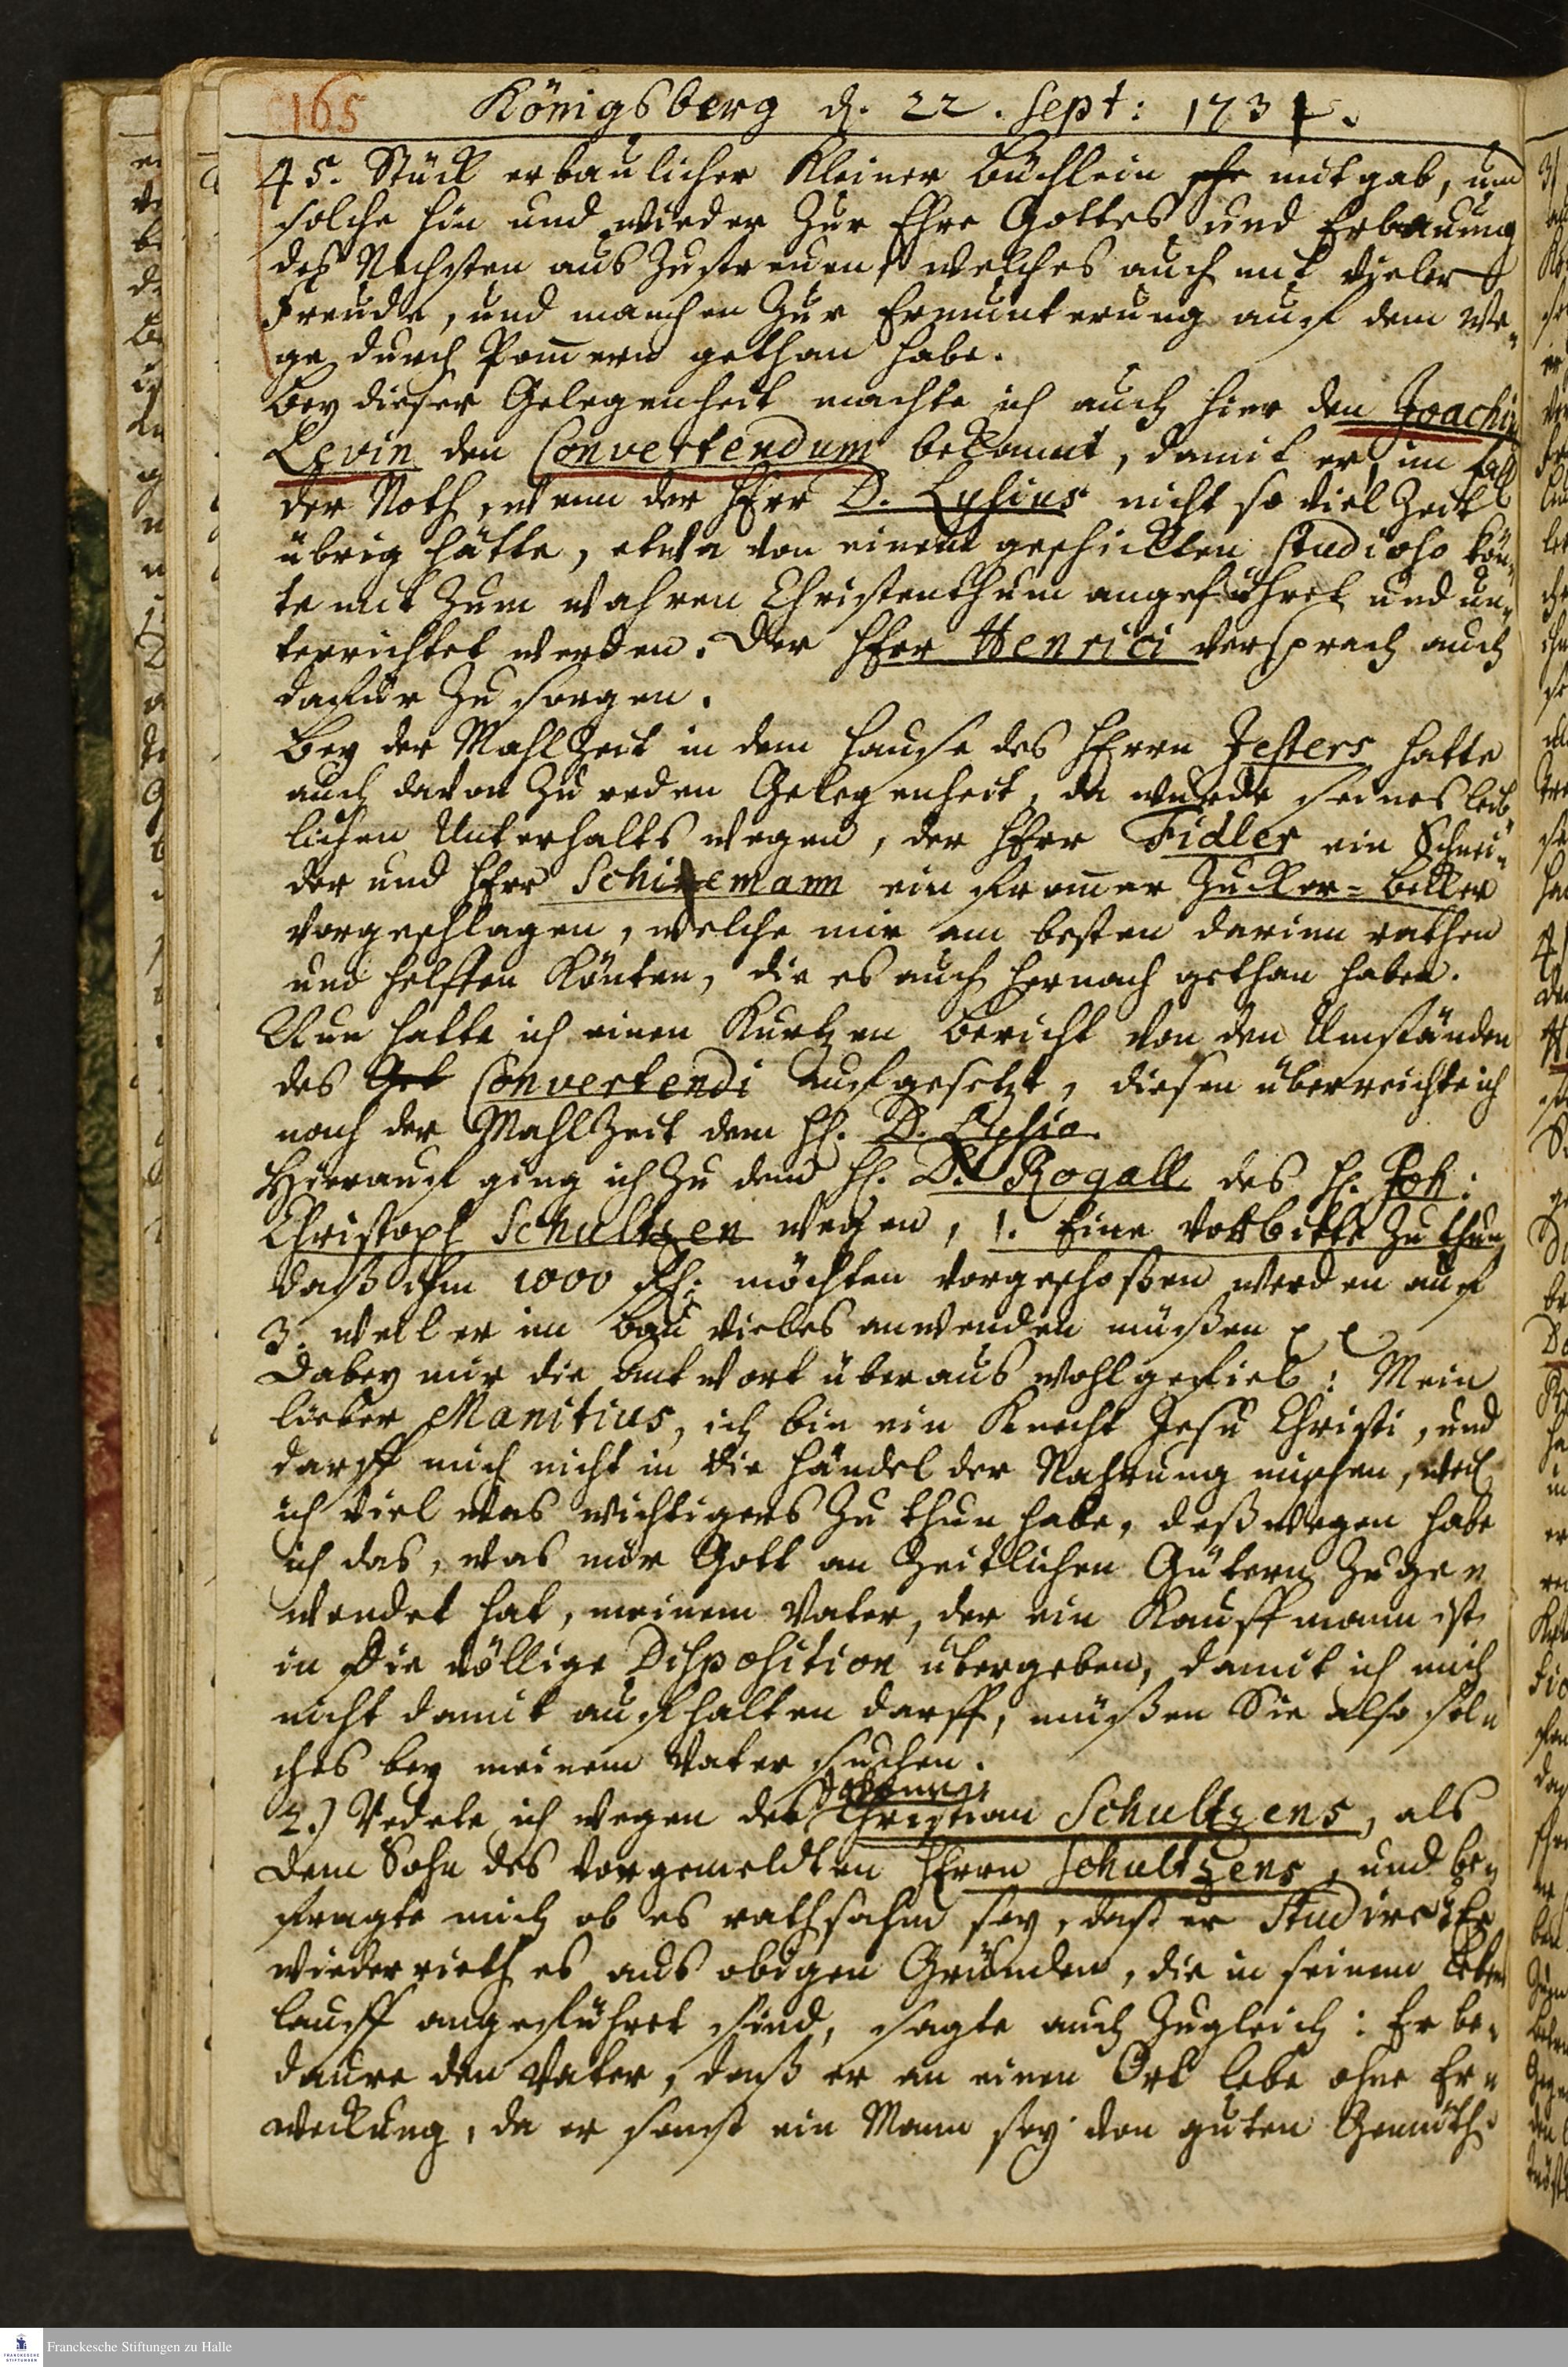 165 Königsberg d. 22. Sept: 1731.
45. Stück erbaulicher kleiner Büchlein mit gab, um
solche hin und wieder zur Ehre Gottes und Erbauung
des Nechsten auszustreuen, welches auch mit vieler
Freude, und manchen zur Ermunterung auf dem We-
ge durch Pom̄ern gethan habe.
Bey dieser Gelegenheit machte ich auch hier den Joachim
Levin den Convertendum bekannt, damit er, im Fall
der Noth, wenn der Herr D. Lysius nicht so viel Zeit
übrig hätte, etwa von einem geschickten Studioso kön-
te mit zum wahren Christenthum angeführet und un-
terrichtet werden. Der Herr Henrici versprach auch
dafür zu sorgen.
Bey der Mahlzeit in dem Hause des Herrn Jesters hatte
auch davon zu reden Gelegenheit, da wurde seines leib-
lichen Unterhalts wegen, der Herr Fidler ein Schnei-
der und Herr Schinemann ein from̄er Zucker-Becker
vorgeschlagen, welche mir am besten darinn rathen
und helffen könten, die es auch hernach gethan haben.
Nun hatte ich einen kurtzen Bericht von den Umständen
des Convertendi aufgesetzt, diesen überreichte ich
nach der Mahlzeit dem H. D. Lysio.
Hierauf ging ich zu dem H. D. Rogall des H. Joh:
Christoph Schultzen wegen, 1. Eine Vorbitte zu thun
daß ihm 1000 fl. möchten vorgeschoßen werden auf
3. weil er im Bau vieles anwenden müßen
Dabey mir die Antwort überaus wohlgefiel: Mein
lieber Manitius, ich bin ein Knecht Jesu Christi, und
darff mich nicht in die Händel der Nahrung mischen, weil
ich viel was wichtigers zu thun habe, deßwegen habe
ich das, was mir Gott an zeitlichen Gütern zuge-
wendet hat, meinem Vater, der ein Kauffmann ist,
in die völlige Disposition übergeben, damit ich mich
nicht damit aufhalten darff, müßen Sie also sol-
ches bey meinem Vater suchen.
2.) Redete ich wegen des Johann Christian Schultzens, als
dem Sohn des vorgemeldten Herrn Schultzens, und be-
fragte mich ob es rathsahm sey, daß er Studire? Er
wiederrieth es aus obigen Gründen, die in seinem Lebens
lauff angeführet sind, sagte auch zugleich: Er be-
daure den Vater, daß er an einen Ort lebe ohne Er-
weckung, da er sonst ein Mann sey von guten Gemüth
Franckesche Stiftungen zu Halle